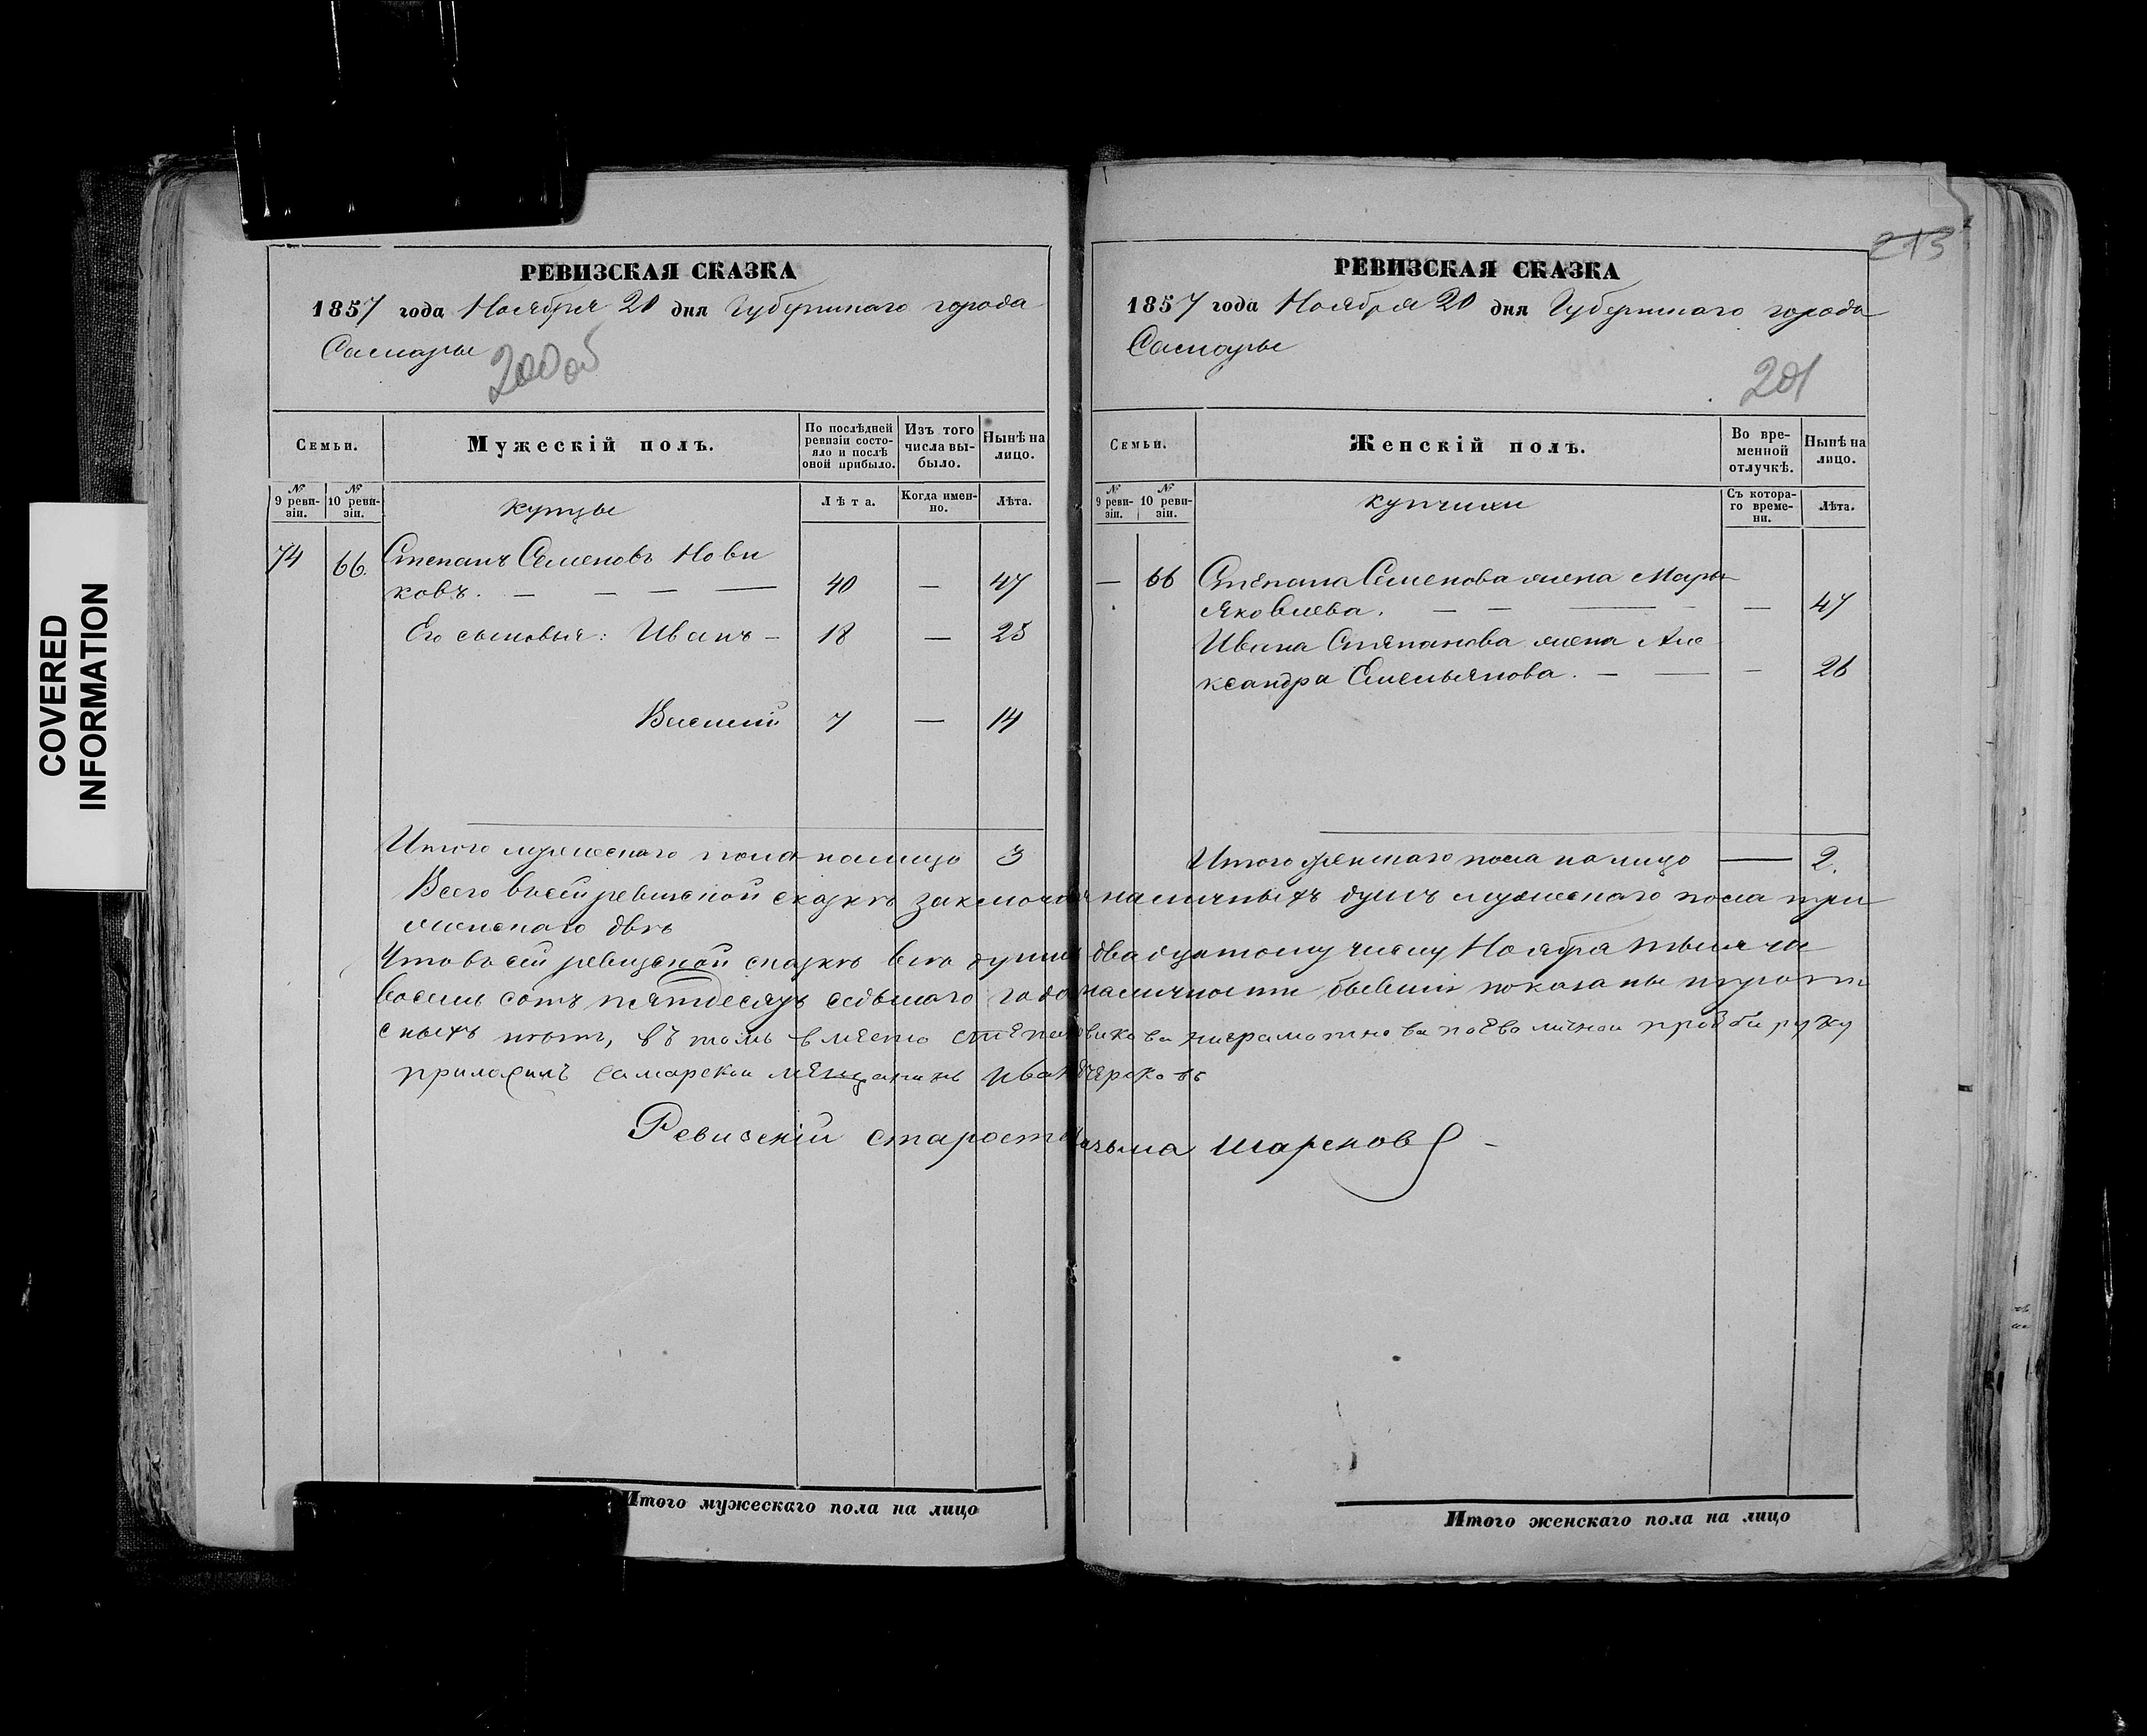 COVERED
INFORMATION
РЕВИЗСКАЯ СКАЗКА
1857 года Ноября 20 дня Губернскаго города
Самары
200об
Семьи.
Мужескій полъ.
По послѣдней ревизіи состояло и послѣ оной прибыло.
Изъ того числа выбыло.
Нынѣ на лицо.
№ 9 ревизіи.
№ 10 ревизіи.
купцы
Лѣта.
Когда именно.
Лѣта.
74 66. Степанъ Семеновъ Нови
ковъ. — — — — 40 — 47
Его сыновья: Иванъ — 18 — 25
Василій 7 — 14
Итого мужескаго пола на лицо 3
РЕВИЗСКАЯ СКАЗКА
213
1857 года Ноября 20 дня Губернскаго города
Самары
201
Семьи.
Женскій полъ.
Во временной отлучкѣ.
Нынѣ на лицо.
№ 9 ревизіи.
№ 10 ревизіи.
купчихи
Съ котораго времени.
Лѣта.
— 66 Степана Семенова жена Марья
Яковлева. — — — — — 47
Ивана Степанова жена Але
ксандра Емельянова. — — — 26
Итого женскаго пола на лицо — 2.
Всего въ сей ревизской сказкѣ заключается наличныхъ душъ мужескаго пола три
женскаго двѣ
Что въ сей ревизской сказкѣ всѣ души двадцатому числу Ноября тысяча
восемь сотъ пятдесятъ седьмаго года наличности бывшія показаны и
нѣтъ, въ томъ вместо Степана Новикова неграмотнова поево личнои прозби руку
приложилъ самарскои мещанинъ иван
Ревизскій староста Козьма Шароновъ —
Итого мужескаго пола на лицо
Итого женскаго пола на лицо